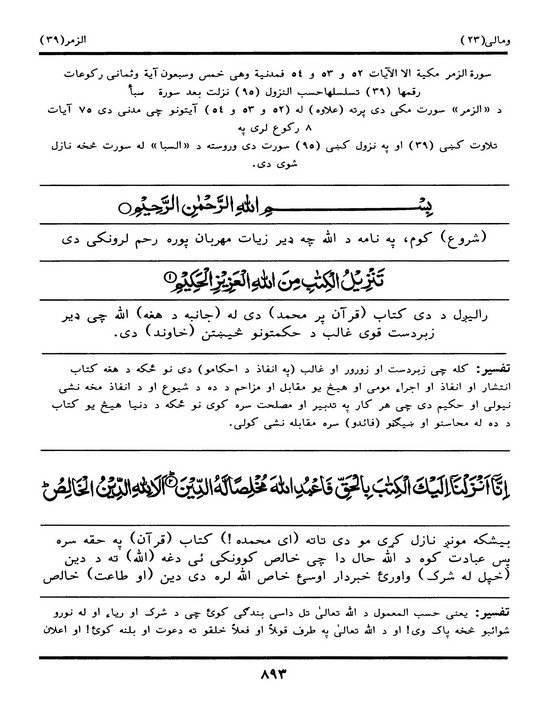 ومالی(۲۳) الزمر(۳۹)
سورة الزمر مکیة الا الآیات ۵۲ و ۵۳ و ۵۴ فمدنیة وهی خمس وسبعون آیة وثمانی رکوعات
رقمها (۳۹) تسلسلهاحسب النزول (۹۵) نزلت بعد سورة سبأ
د «الزمر» سورت مکی دی پرته (علاوه) له (۵۲ و ۵۳ و ۵۴) آیتونو چی مدنی دی ۷۵ آیات
۸ رکوع لری په
تلاوت کښی (۳۹) او په نزول کښی (۹۵) سورت دی وروسته د «السبا» له سورت څخه نازل
شوی دی.
بِسْمِ اللهِ الرَّحْمٰنِ الرَّحِيْمِ
(شروع) کوم، په نامه د الله چه ډیر زیات مهربان پوره رحم لرونکی دی
تَنْزِيْلُ الْكِتٰبِ مِنَ اللهِ الْعَزِيْزِ الْحَكِيْمِ ①
رالیږل د دی کتاب (قرآن پر محمد) دی له (جانبه د هغه) الله چی ډیر
زبردست قوی غالب د حکمتونو څښتن (خاوند) دی.
تفسیر: کله چی زبردست او زورور او غالب (په انفاذ د احکامو) دی نو ځکه د هغه کتاب
انتشار او انفاذ او اجراء مومی او هیڅ یو مقابل او مزاحم د ده د شیوع او د انفاذ مخه نشی
نیولی او حکیم دی چی هر کار په تدبیر او مصلحت سره کوی نو ځکه د دنیا هیڅ یو کتاب
د ده له محاسنو او ښیګڼو (فائدو) سره مقابله نشی کولی.
اِنَّآ اَنْزَلْنَآ اِلَيْكَ الْكِتٰبَ بِالْحَقِّ فَاعْبُدِ اللهَ مُخْلِصًا لَّهُ الدِّيْنَ ② اَلَا لِلّٰهِ الدِّيْنُ الْخَالِصُ
بیشکه مونږ نازل کړی مو دی تاته (ای محمده!) کتاب (قرآن) په حقه سره
پس عبادت کوه د الله حال دا چی خالص کوونکی ئی دغه (الله) ته د دین
(خپل له شرک) واورئ خبردار اوسئ خاص الله لره دی دین (او طاعت) خالص
تفسیر: یعنی حسب المعمول د الله تعالیٰ تل داسی بندګی کوئ چی د شرک او ریاء او له نورو
شوائبو څخه پاک وی! او د الله تعالیٰ په طرف قولاً او فعلاً خلقو ته دعوت او بلنه کوئ! او اعلان
۸۹۳